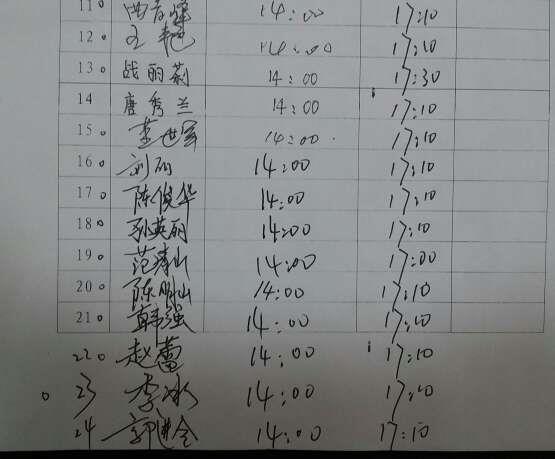 11 14:00 17:10
12 王艳 14:00 17:10
13 战丽莉 14:00 17:30
14 唐秀兰 14:00 17:10
15 李世军 14:00 17:10
16 刘丽 14:00 17:10
17 陈俊华 14:00 17:10
18 孙英丽 14:00 17:10
19 范 山 14:00 17:00
20 陈明山 14:00 17:10
21 韩强 14:00 17:10
22 赵蕾 14:00 17:10
23 李冰 14:00 17:10
24 郭 14:00 17:10